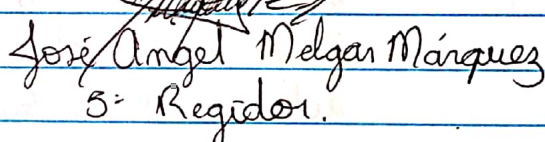 José Angel Melgar Márquez
5º Regidor.